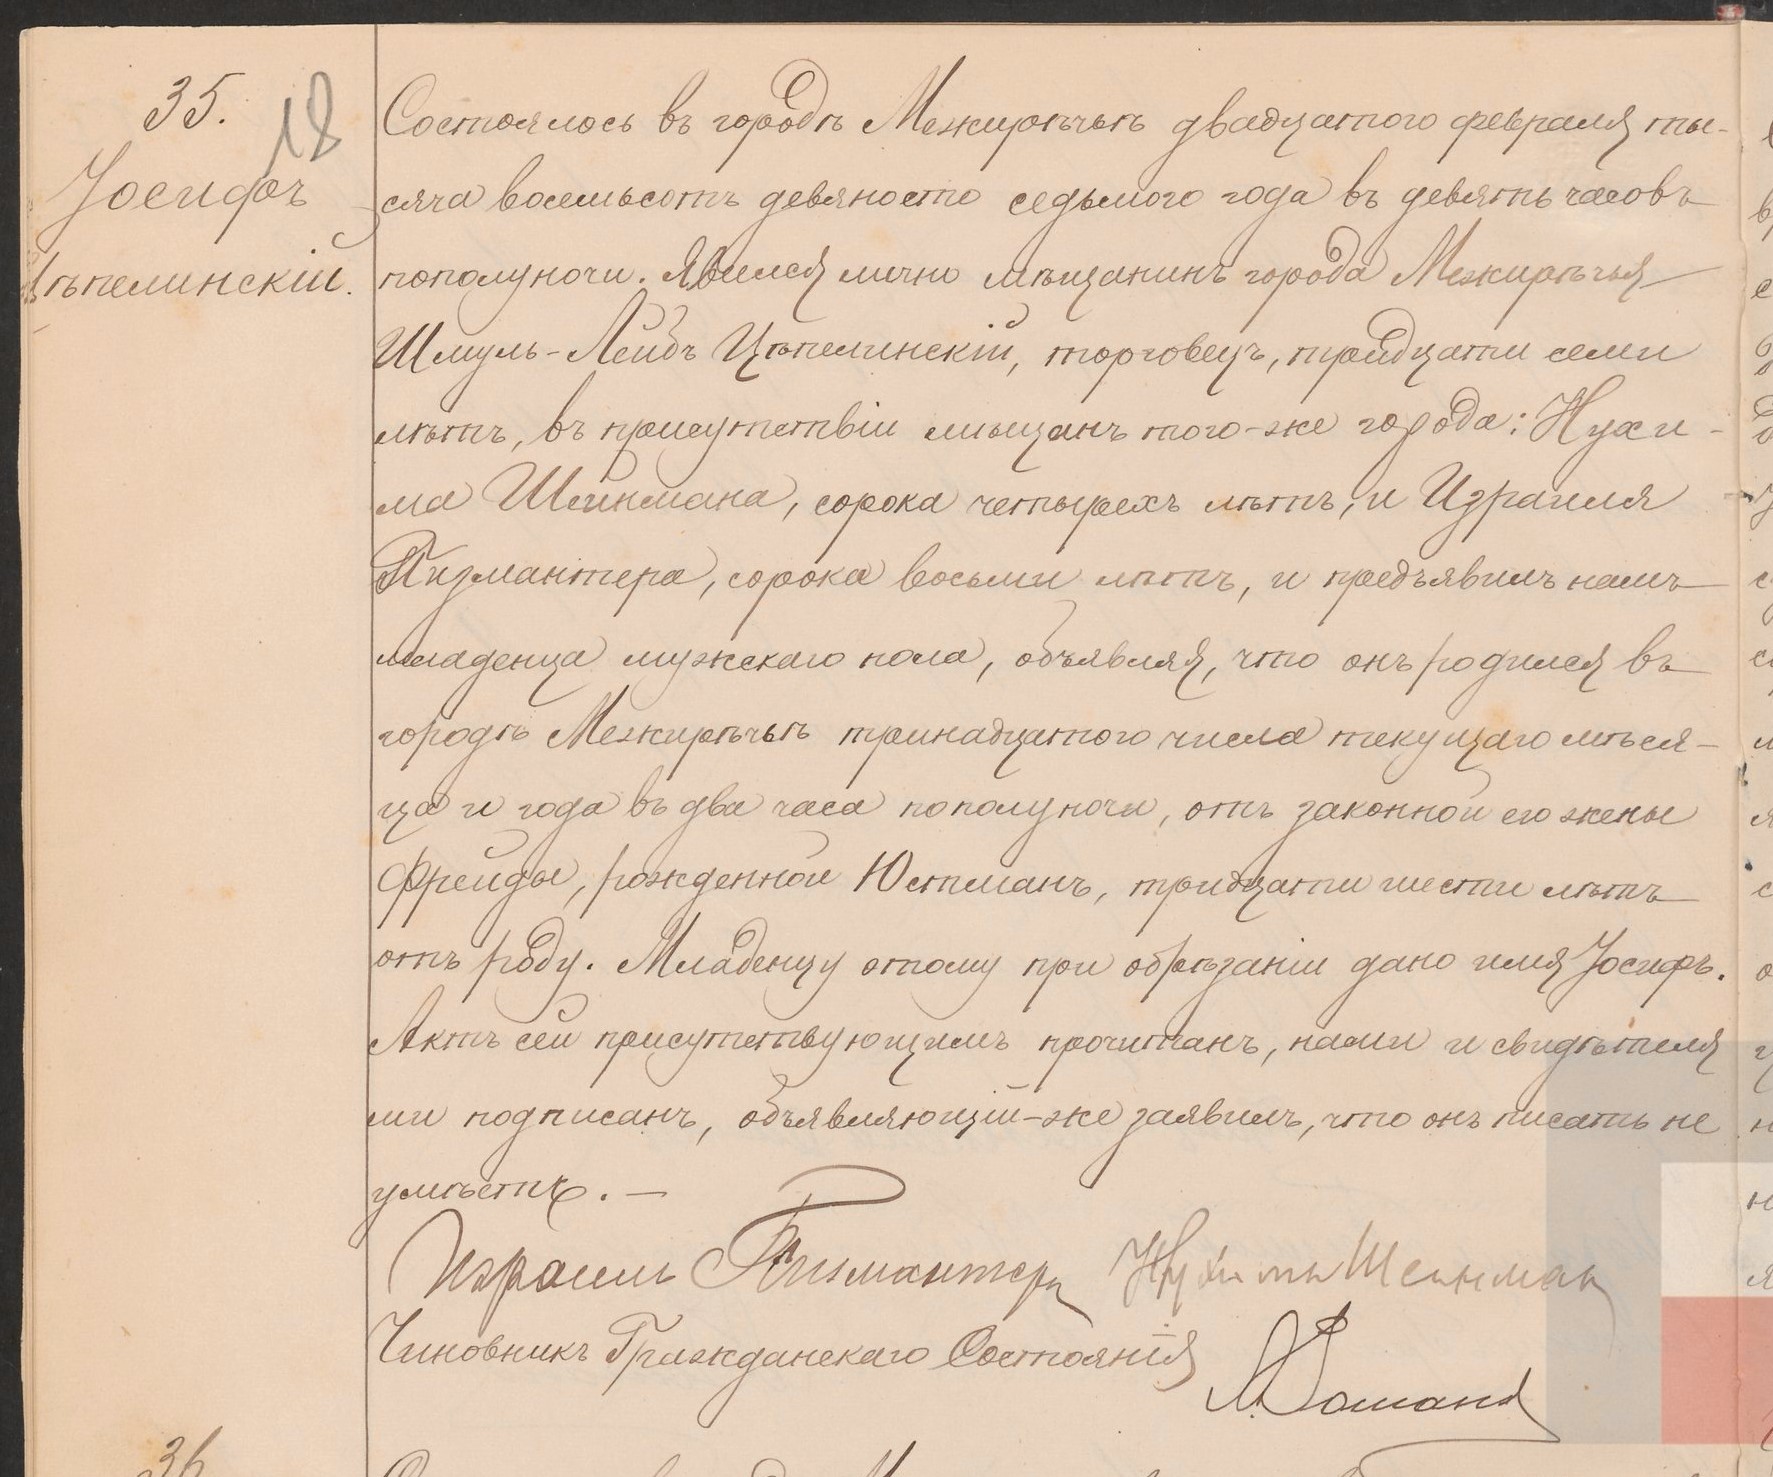 35.
18
Іосифъ
Цѣпелинскій.
Состоялось въ городѣ Межирѣчьѣ двадцатого февраля ты-
сяча восемьсотъ девяносто седьмого года въ девять часовъ
пополуночи. Явился лично мѣщанинъ города Межирѣчья
Шмуль-Лейбъ Цѣпелинскій, торговецъ, тридцати семи
лѣтъ, въ присутствіи мѣщанъ того-же города: Нухи-
ма Шейнмана, сорока четырехъ лѣтъ, и Израиля
Пизмантера, сорока восьми лѣтъ, и предъявилъ намъ
младенца мужскаго пола, объявляя, что онъ родился въ
городѣ Межирѣчьѣ тринадцатого числа текущаго мѣся-
ца и года въ два часа пополуночи, отъ законной его жены
Фрейды, рожденной Юстманъ, тридцати шести лѣтъ
отъ роду. Младенцу этому при обрѣзаніи дано имя Іосифъ.
Актъ сей присутствующимъ прочитанъ, нами и свидѣтеля
ми подписанъ, объявляющій-же заявилъ, что онъ писать не
умѣетъ. —
Израиль Пизмантеръ Нухимъ Шейнман
Чиновникъ Гражданскаго Состоянія
36